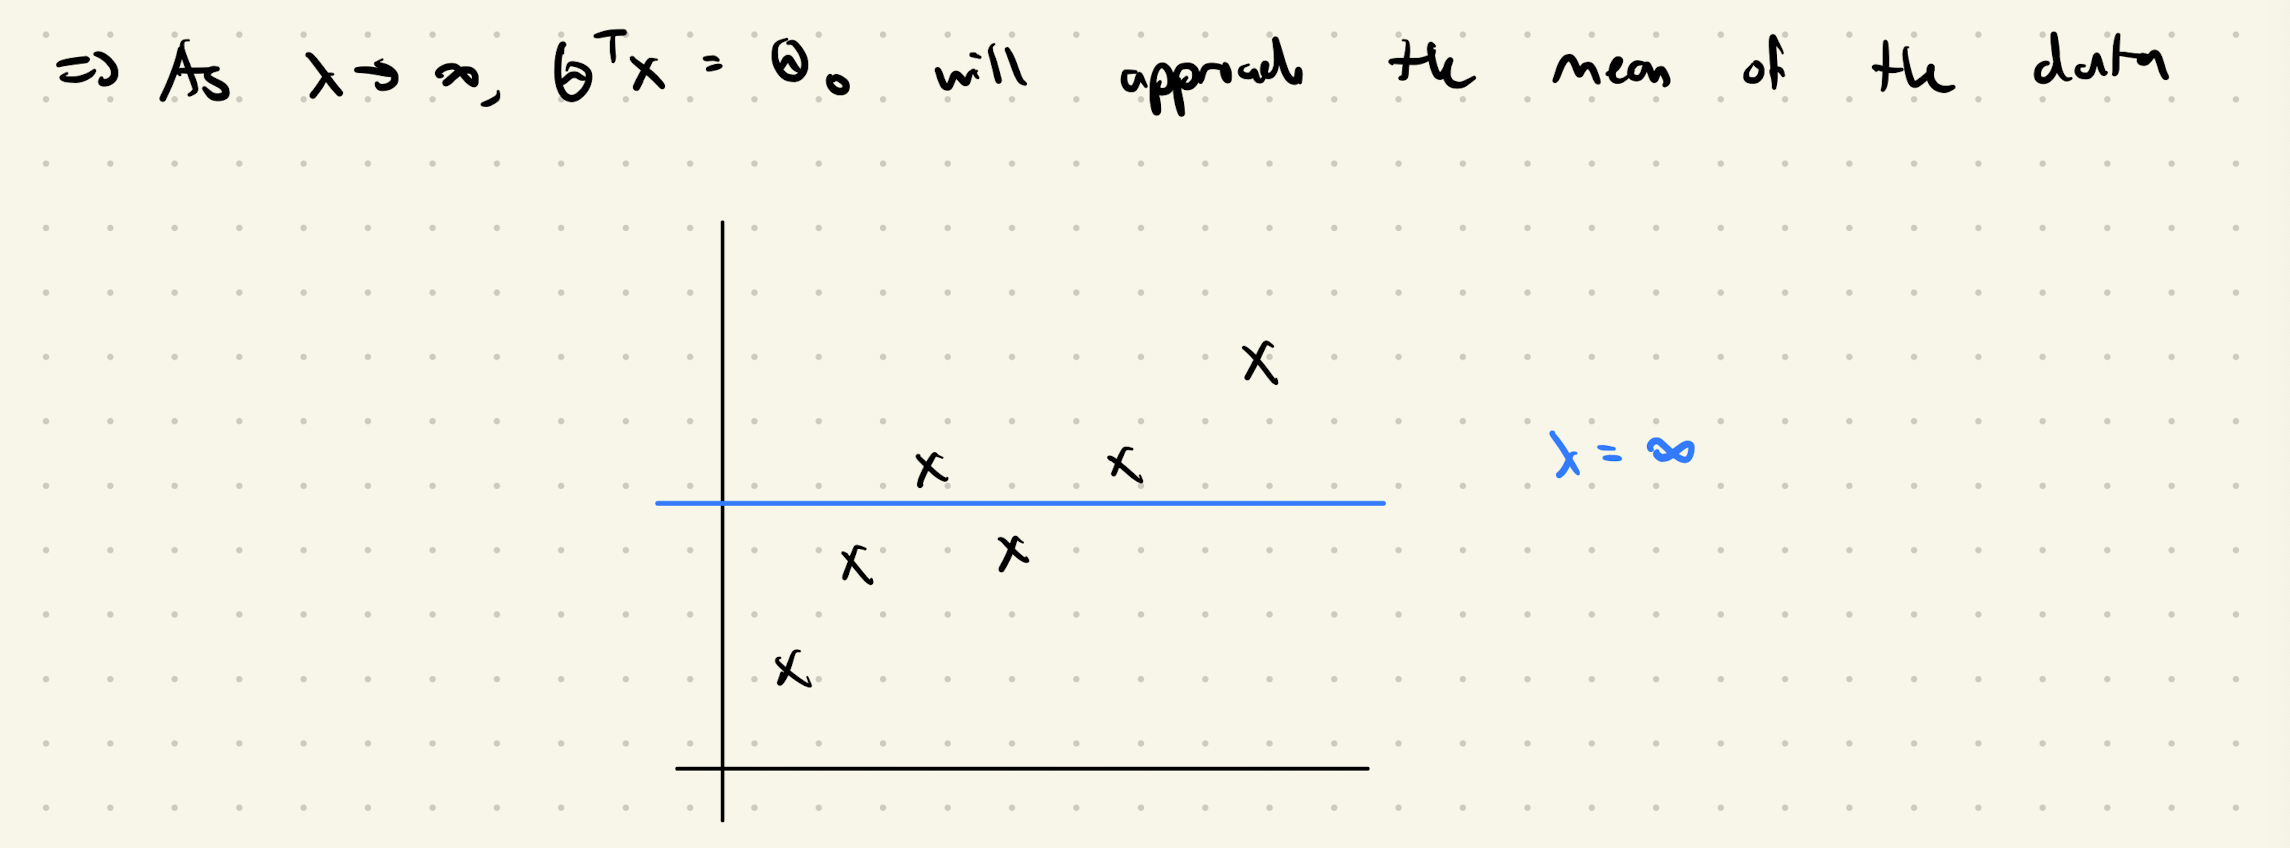 => As λ→∞, θᵀx = θ₀ will approach the mean of the data
λ = ∞